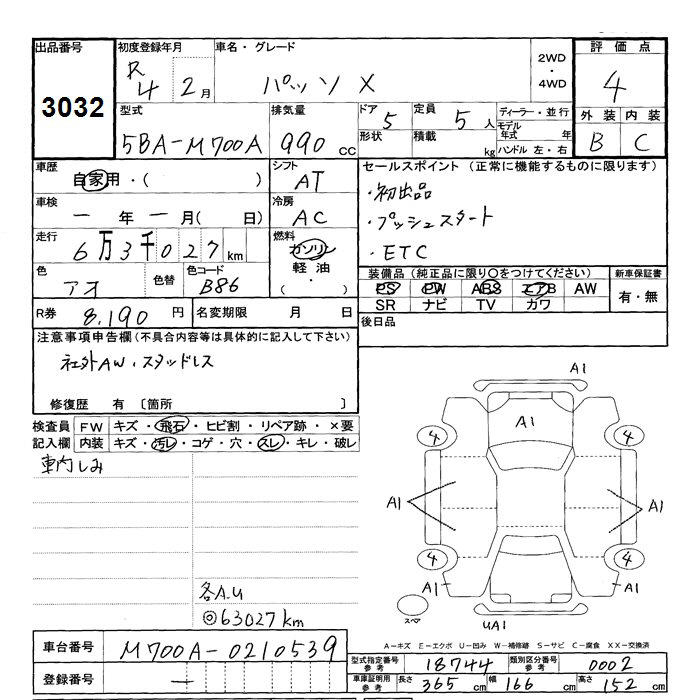 出品番号 初度登録年月 車名・グレード 2WD・4WD 評価点
3032 R4 2月 パッソ X 4
型式 排気量 ドア 5 定員 5人 ディーラー・並行 外装 内装
5BA-M700A 990cc 形状 積載 kg モデル年式 年 B C
ハンドル 左・右
車歴 シフト セールスポイント (正常に機能するものに限ります)
自家用・( ) AT ・初出品
車検 冷房 ・プッシュスタート
一年一月( 日) AC ・ETC
走行 燃料
6万3千027km ガソリン
色 色替 色コード 軽油 装備品 (純正品に限り○をつけてください) 新車保証書
アオ B86 ( ・ ) PS PW ABS エアB AW 有・無
SR ナビ TV カワ
R券 8,190円 名変期限 月 日 後日品
注意事項申告欄(不具合内容等は具体的に記入して下さい)
社外AW・スタッドレス
修復歴 有 〔箇所 〕
検査員 FW キズ・飛石・ヒビ割・リペア跡・×要
記入欄 内装 キズ・汚レ・コゲ・穴・スレ・キレ・破レ
車内しみ
A1
A1
4 4
A1 A1
4 4
A1 A1
スペア UA1
各A.U
◎63027km
A-キズ E-エクボ U-凹み W-補修跡 S-サビ C-腐食 XX-交換済
車台番号 M700A-0210539
型式指定番号 参考 18744 類別区分番号 参考 0002
登録番号 一
車庫証明用 参考 長さ 365cm 幅 166cm 高さ 152cm